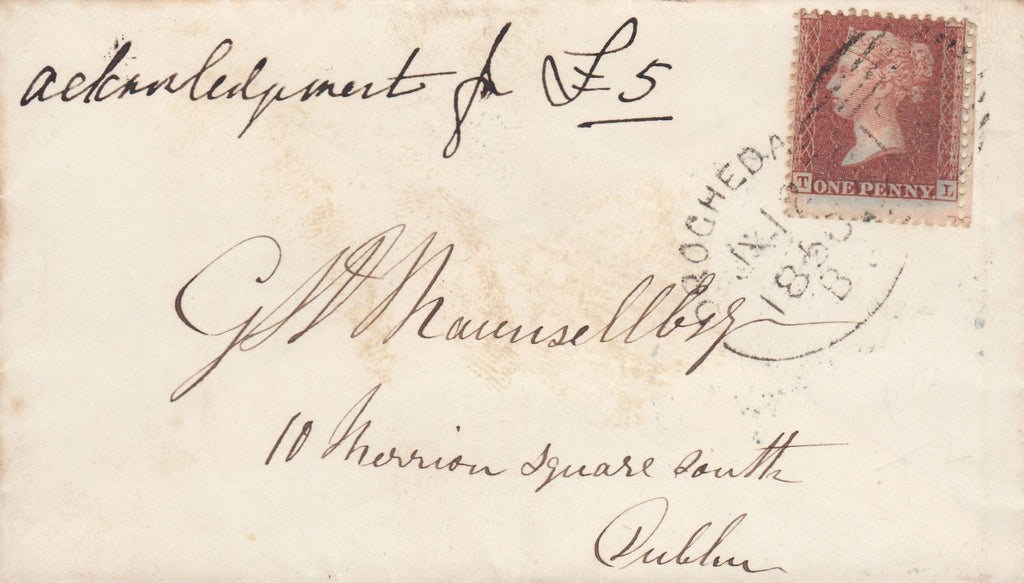 acknowledgment for £5
T ONE PENNY. L
DROGHEDA
1858
B
Maunsell Esq
10 Merrion Square South
Dublin